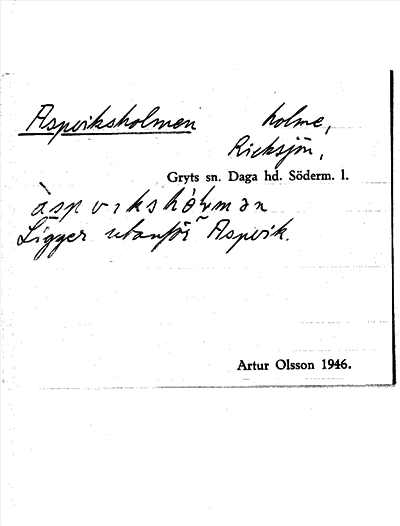 Aspviksholmen holme,
Ricksjön,
Gryts sn. Daga hd. Söderm. l.
Ligger utanför Aspvik.
Artur Olsson 1946.